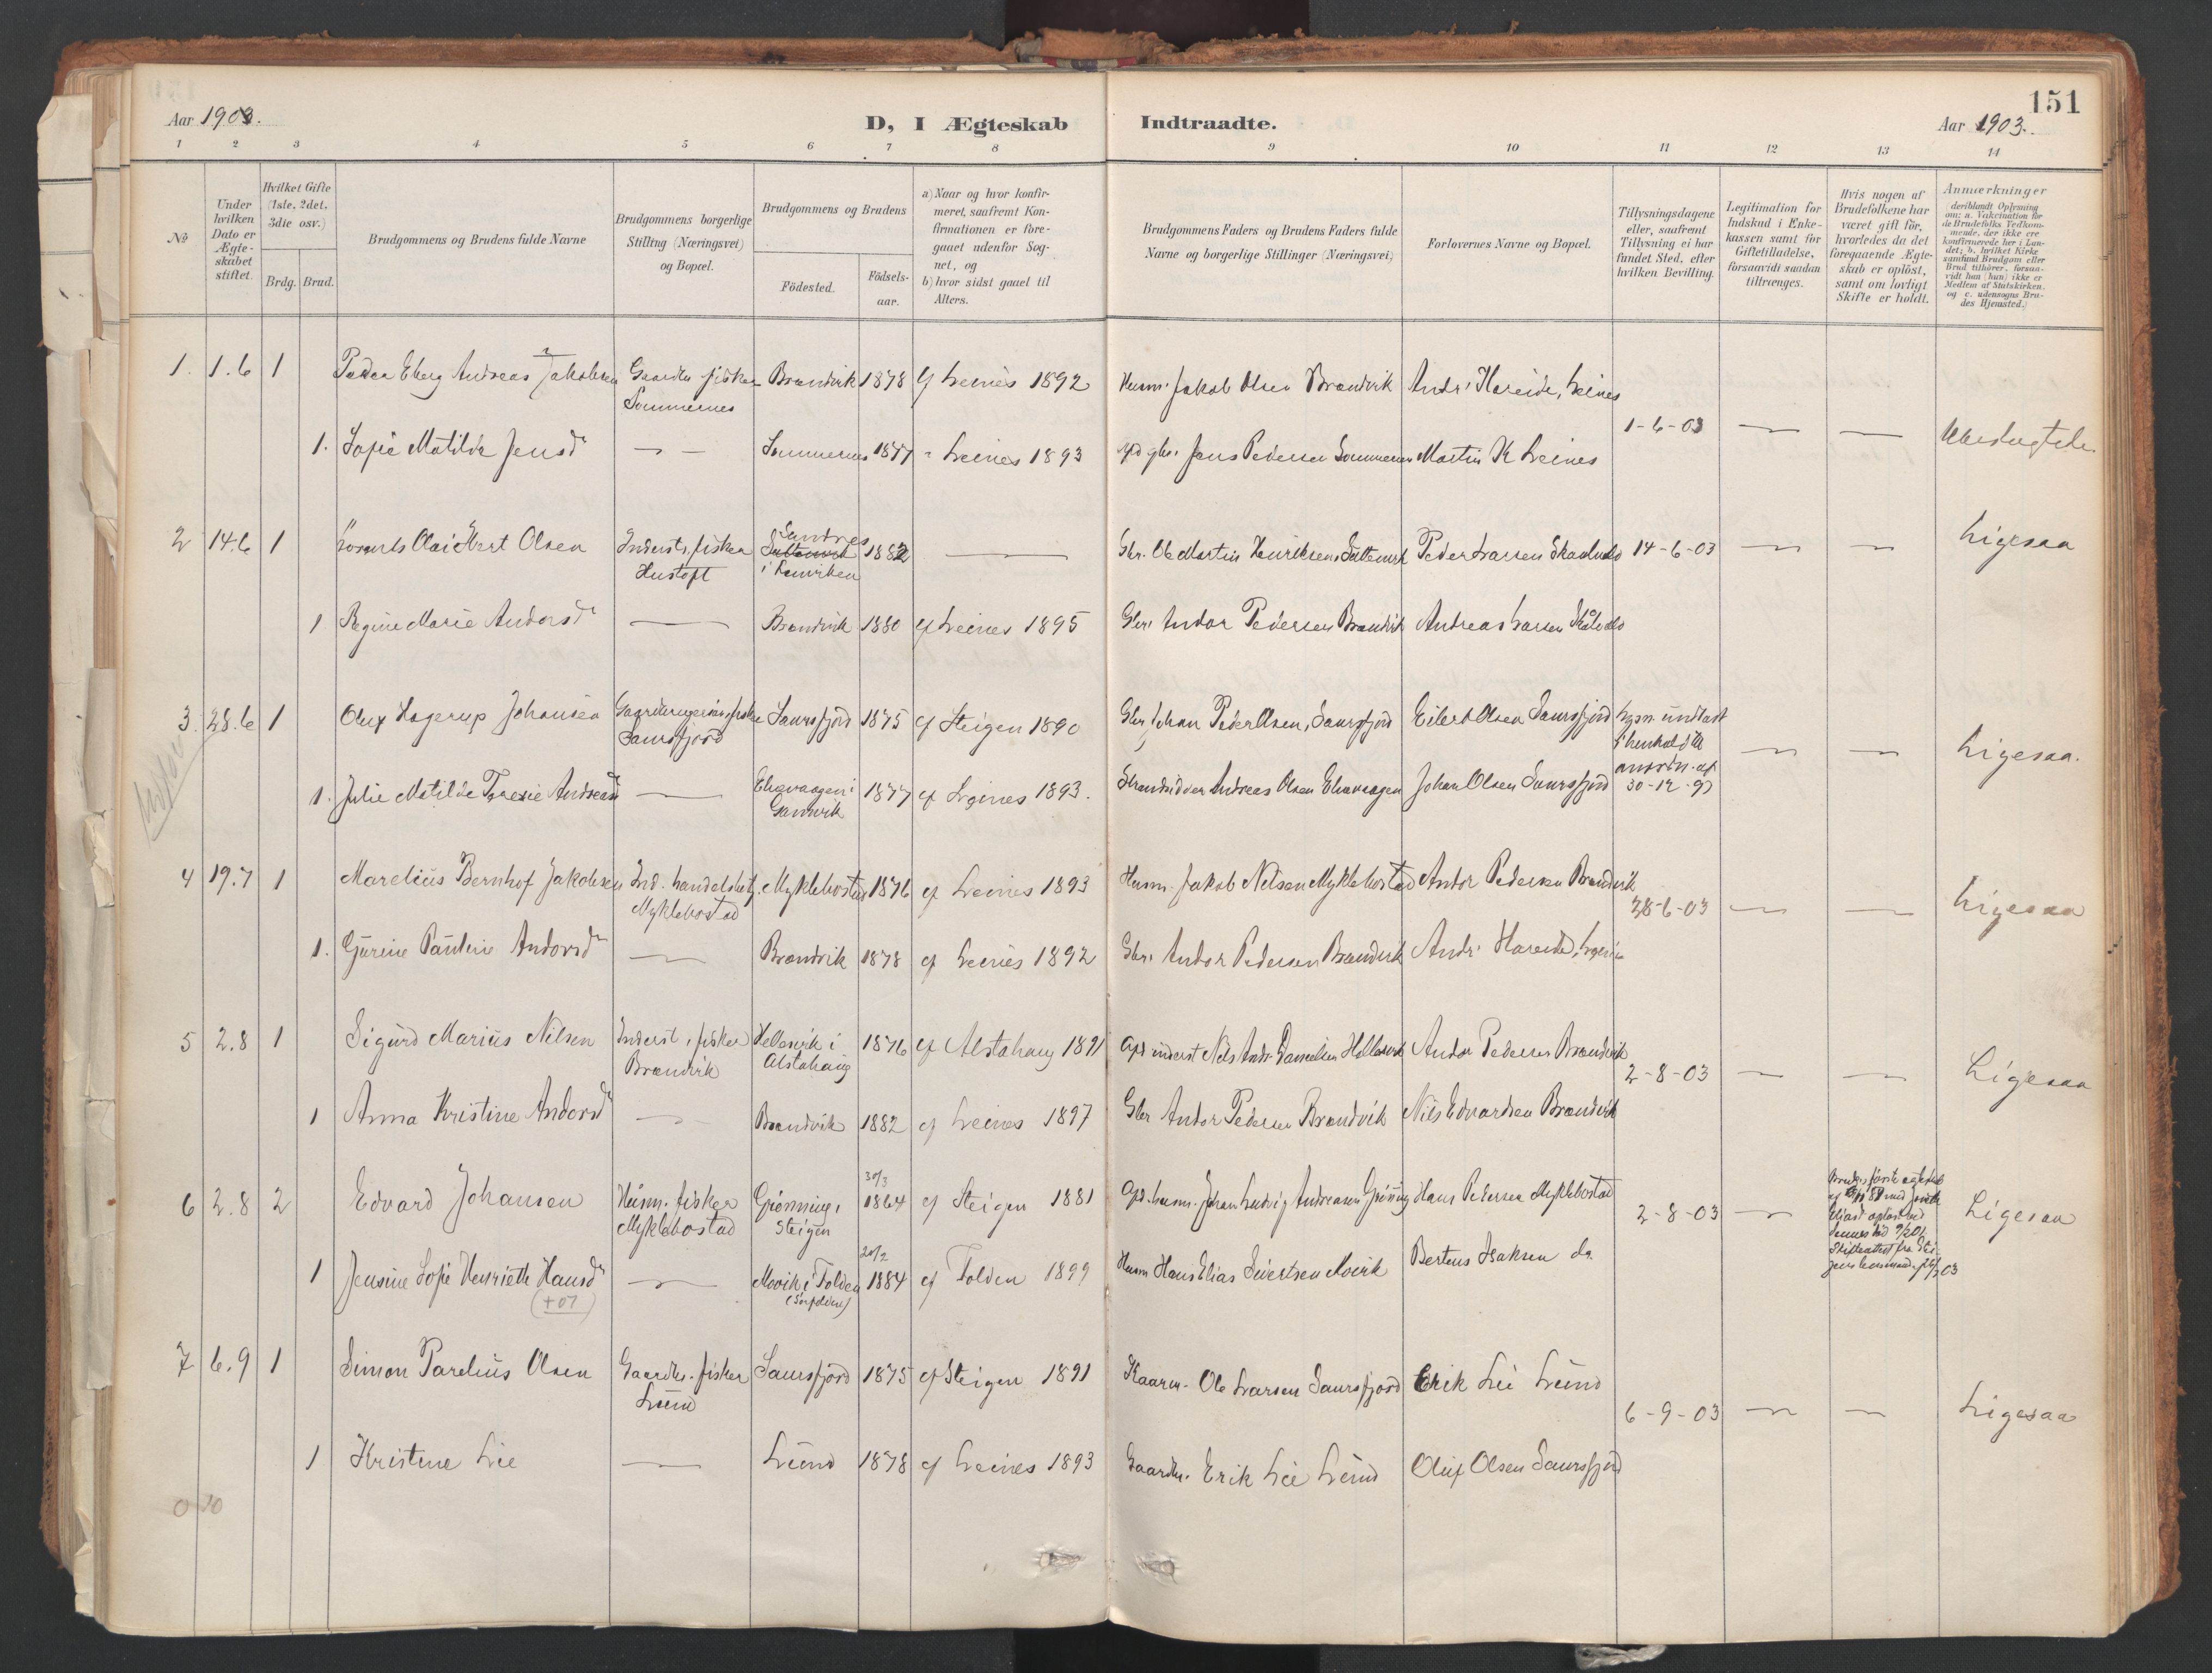 151
Aar 1903.
D, I Ægteskab Indtraadte.
Aar 1903.
1 2 3 4 5 6 7 8 9 10 11 12 13 14
No
Under hvilken Dato er Ægteskabet stiftet.
Hvilket Gifte (1ste, 2det, 3die osv.)
Brdg. Brud.
Brudgommens og Brudens fulde Navne
Brudgommens borgerlige Stilling (Næringsvei) og Bopæl.
Brudgommens og Brudens
Födested.
Födsels-aar.
a) Naar og hvor konfir-
meret, saafremt Kon-
firmationen er fore-
gaaet udenfor Sog-
net, og
b) hvor sidst gaaet til
Alters.
Brudgommens Faders og Brudens Faders fulde
Navne og borgerlige Stillinger (Næringsvei)
Forlovernes Navne og Bopæl.
Tillysningsdagene
eller, saafremt
Tillysning ei har
fundet Sted, efter
hvilken Bevilling.
Legitimation for
Indskud i Enke-
kassen samt for
Giftetilladelse,
forsaavidt saadan
tiltrænges.
Hvis nogen af
Brudefolkene har
været gift för,
hvorledes da det
foregaaende Ægte-
skab er oplöst,
samt om lovligt
Skifte er holdt.
Anmærkninger
(deriblandt Oplysning
om: a. Vakcination for
de Brudefolks Vedkom-
mende, der ikke ere
konfirmerede her i Lan-
det; b. hvilket Kirke-
samfund Brudgom eller
Brud tilhörer, forsaa-
vidt han (hun) ikke er
Medlem af Statskirken.
og c. udensogns Bru-
des Hjemsted.)
1. 1.6 1 Peder Eberg Andreas Jakobsen Gaardbr fisker Brændvik 1878 cf Leines 1892 Husm. Jakob Olsen Brændvik Andr. Hareide, Leines
Sommernes
1-6-03 Ubeslægtede.
1. Sofie Matilde Jensd Sommernes 1877 " Leines 1893 Jens Pedersen Sommernes Martin K Leines
2 14.6 1 Olai Olsen Inderst, fisker Sandnes 1882 Gbr. Ole Martin Henriksen Peder Larsen 14-6-03 Ligesaa
Hustoft i Lenviken
1 Regine Marie Andorsd Brændvik 1880 cf Leines 1895 Gbr. Andor Pedersen Brændvik Andreas Larsen
3. 28.6 1 Oluf Hagerup Johansen Saursfjord 1875 cf Steigen 1890 Gbr. Johan Peder Olsen, Saursfjord Eilert Olsen Saursfjord Lysn. undladt
Saursfjord
i henhold til
anordn. af
30-12-97
Ligesaa.
1. Julie Matilde Andreasd i 1877 cf Leines 1893. Strandsidder Andreas Olsen Johan Olsen Saursfjord
4 19.7 1 Marelius Bernhof Jakobsen Ind. handelsbetj. Myklebostad 1876 cf Leines 1893 Husm. Jakob Nilsen Myklebostad Andor Pedersen Brændvik
Myklebostad
28-6-03 Ligesaa
1. Gurine Pauline Andorsd Brændvik 1878 cf Leines 1892 Gbr. Andor Pedersen Brændvik Andr. Hareide, Leines
5 2.8 1 Sigurd Marius Nilsen Inderst, fisker i 1876 cf Alstahaug 1891 inderst Nils Andr. Andor Pedersen Brændvik
Brændvik Alstahaug
2-8-03 Ligesaa
1 Anna Kristine Andorsd Brændvik 1882 cf Leines 1897 Gbr Andor Pedersen Brændvik Nils Edvardsen Brændvik
30/3
6 2.8 2 Edvard Johansen Husm. fisker 1864 cf Steigen 1881 husm. Johan Ludvig Andreasen Hans Pedersen Myklebostad
Myklebostad Steigen
2-8-03 Ligesaa
20/2
1 Jensine Sofie Henriette Hansd i Folden 1884 cf Folden 1899 Husm Hans Elias Sivertsen Berteus Isaksen do.
(+07)
7 6.9 1 Simon Parelius Olsen Gaardbr. fisker Saursfjord 1875 cf Steigen 1891 Kaarm. Ole Larsen Saursfjord Erik Lie Lund
Lund
6-9-03 Ligesaa
1 Kristine Lie Lund 1878 cf Leines 1893 Gaardbr. Erik Lie Lund Oluf Olsen Saursfjord